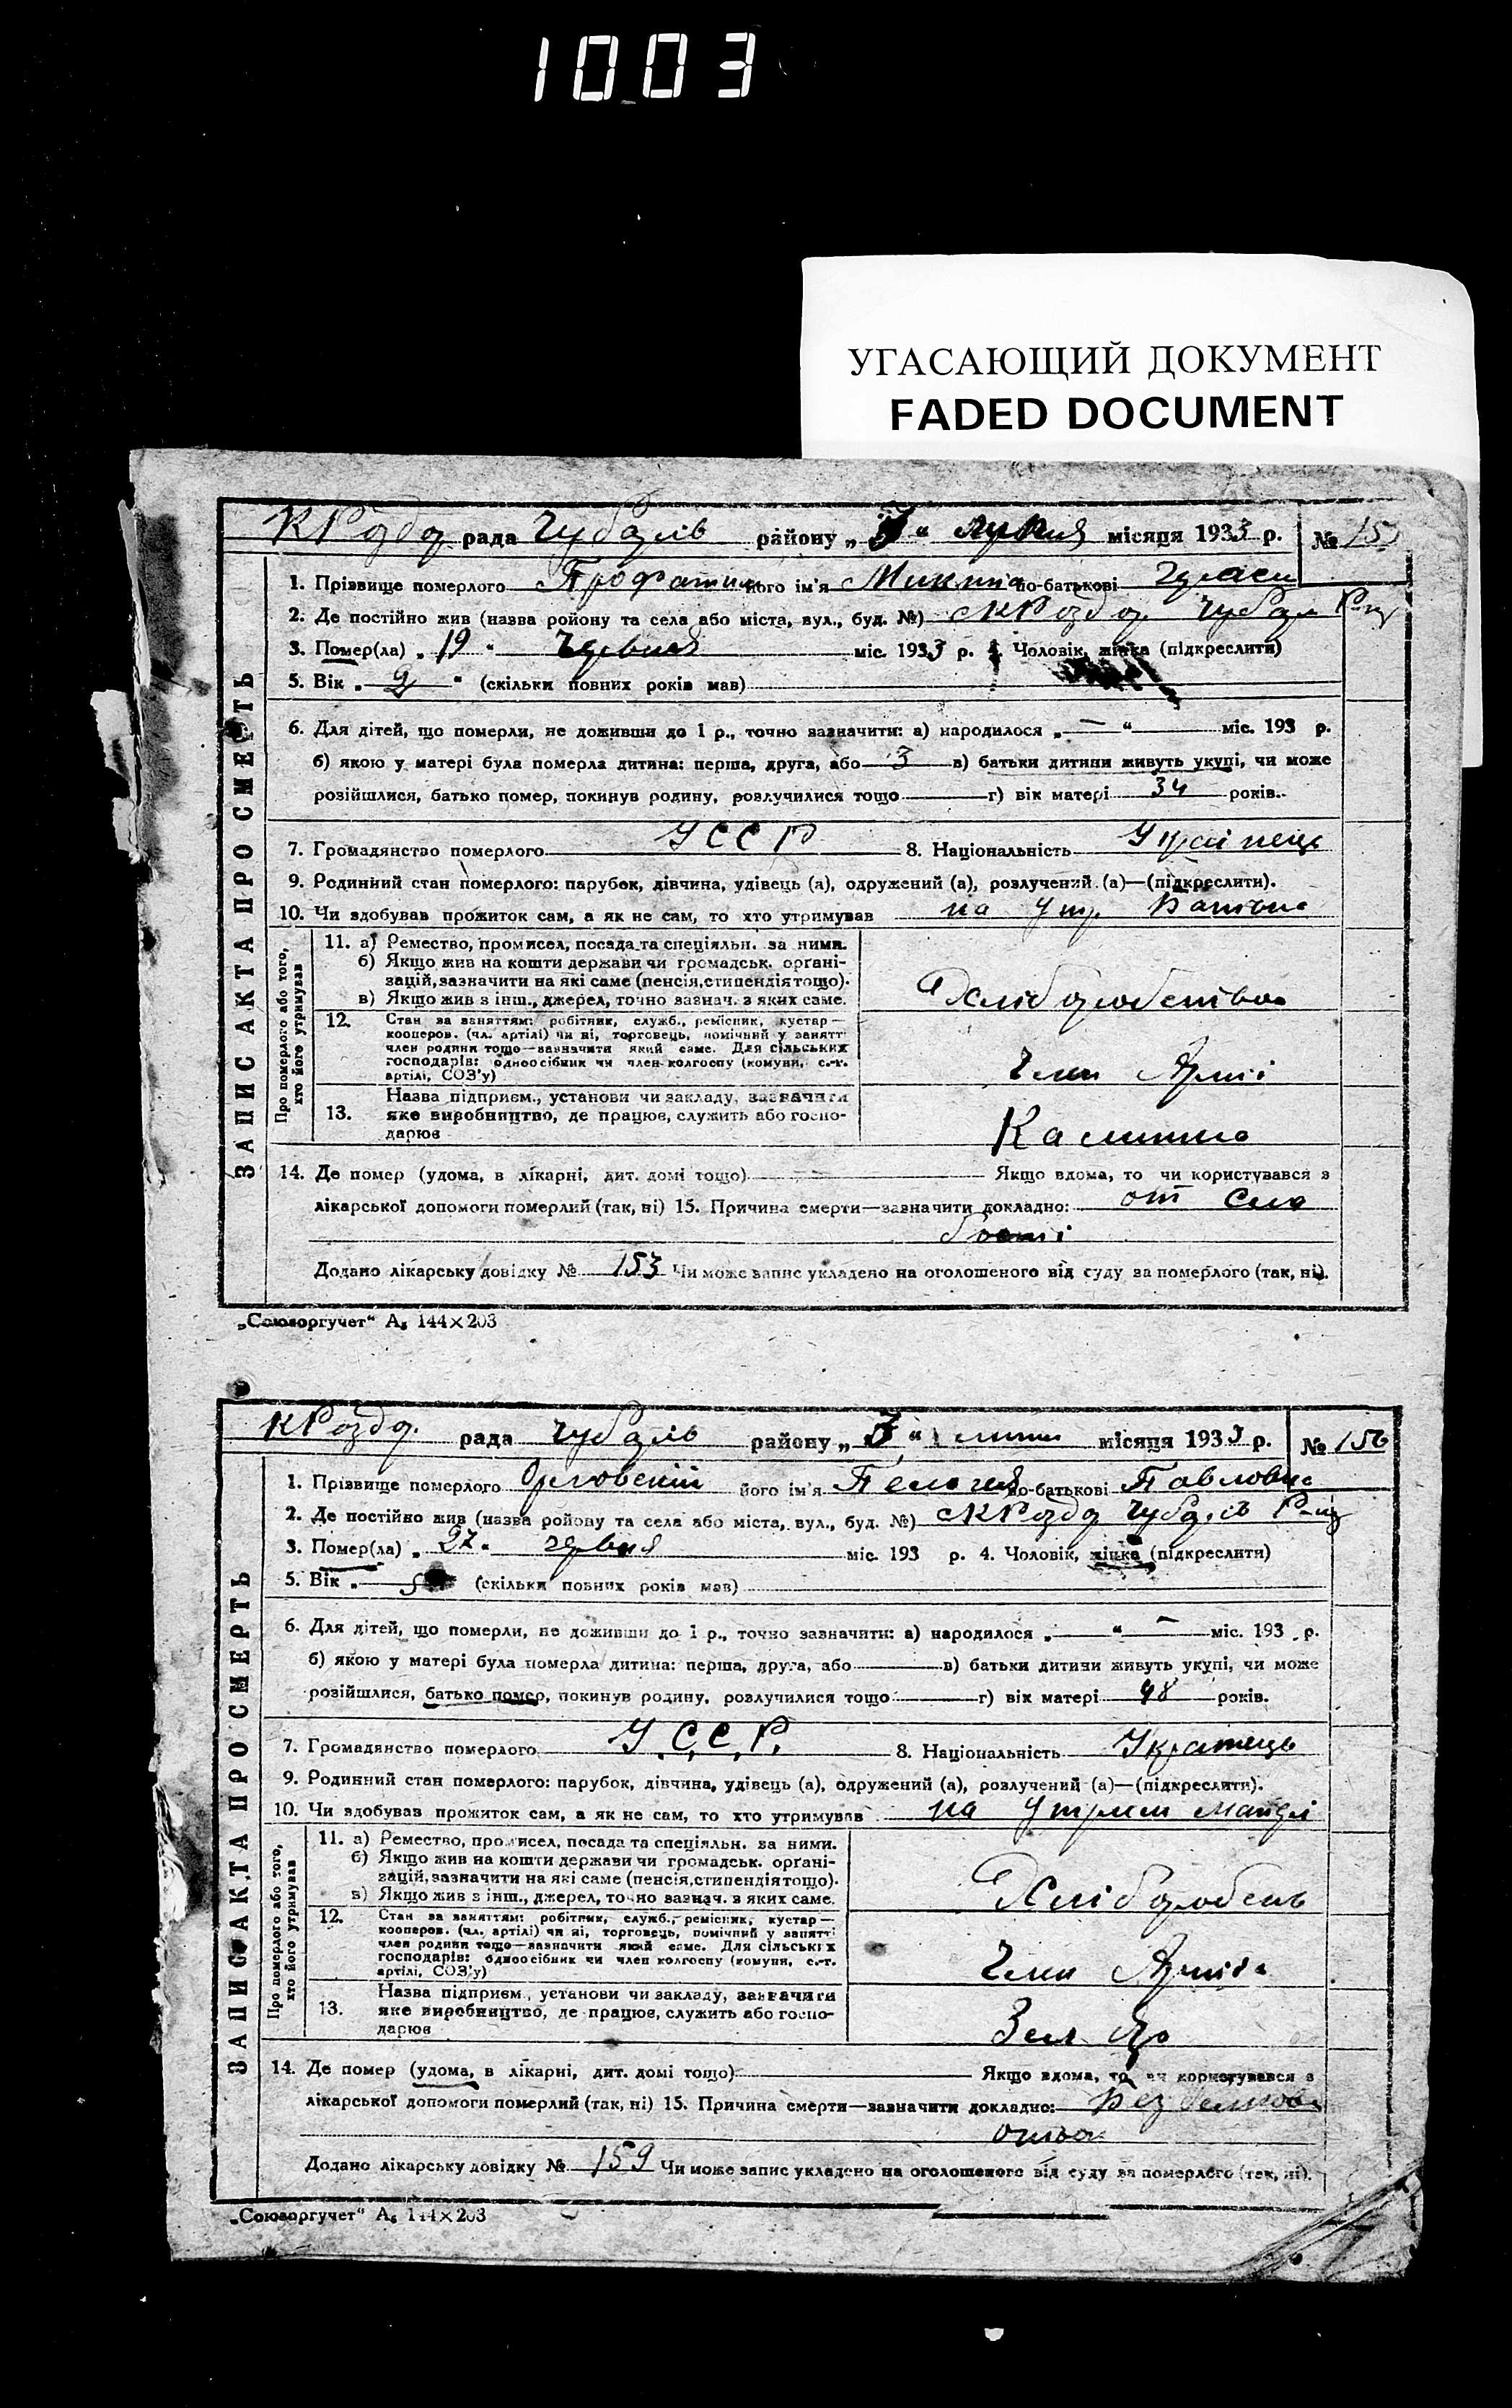 1003
УГАСАЮЩИЙ ДОКУМЕНТ
FADED DOCUMENT
рада район у „ 3 “ місяця 1933 р. №
ЗАПИС АКТА ПРО СМЕРТЬ
1. Прізвище померлого його ім'я Микита по-батькові
2. Де постійно жив (назва ройону та села або міста, вул., буд. №)
3. Помер(ла) „ 19 “ червня міс. 1933 р. 4. Чоловік, жінка (підкреслити)
5. Вік „ “ (скільки повних років мав)
6. Для дітей, що померли, не доживши до 1 р., точно зазначити: а) народилося „ — “ міс. 193 р.
б) якою у матері була померла дитина: перша, друга, або 3 в) батьки дитини живуть укупі, чи може
розійшлися, батько помер, покинув родину, розлучилися тощо г) вік матері 34 років.
7. Громадянство померлого УССР 8. Національність Українець
9. Родинний стан померлого: парубок, дівчина, удівець (а), одружений (а), розлучений (а)—(підкреслити).
10. Чи здобував прожиток сам, а як не сам, то хто утримував на утр. Батька
Про померлого або того, хто його утримував
11. а) Ремество, промисел, посада та спеціяльн. за ними.
б) Якщо жив на кошти держави чи громадськ. органі-
зацій, зазначити на які саме (пенсія, стипендія тощо).
в) Якщо жив з інш., джерел, точно зазнач. з яких саме.
Хліборобство
12. Стан за заняттям: робітник, служб., ремісник, кустар—
кооперов. (чл. артілі) чи ні, торговець, помічний у занятт
член родини тощо—зазначити який саме. Для сільських
господарів: одноосібник чи член колгоспу (комуни, с.-г.
артілі, СОЗ'у)
Член Артілі
13. Назва підприєм., установи чи закладу, зазначити
яке виробництво, де працює, служить або госпо-
дарює
Калинина
14. Де помер (удома, в лікарні, дит. домі тощо) Якщо вдома, то чи користувався з
лікарської допомоги померлий (так, ні) 15. Причина смерти—зазначити докладно: от сла
бости
Додано лікарську довідку № 153 Чи може запис укладено на оголошеного від суду за померлого (так, ні).
„Союзоргучет“ А₅ 144×203
рада району „ 3 “ липня місяця 1933 р. № 156
ЗАПИС АКТА ПРО СМЕРТЬ
1. Прізвище померлого Орловський його ім'я Пелагея по-батькові Павловна
2. Де постійно жив (назва ройону та села або міста, вул., буд. №)
3. Помер(ла) „ 27 “ червня міс. 193 р. 4. Чоловік, жінка (підкреслити)
5. Вік „ (скільки повних років мав)
6. Для дітей, що померли, не доживши до 1 р., точно зазначити: а) народилося „ “ — міс. 193 р.
б) якою у матері була померла дитина: перша, друга, або в) батьки дитини живуть укупі, чи може
розійшлися, батько помер, покинув родину, розлучилися тощо г) вік матері 48 років.
7. Громадянство померлого У.С.С.Р. 8. Національність Українець
9. Родинний стан померлого: парубок, дівчина, удівець (а), одружений (а), розлучений (а)—(підкреслити).
10. Чи здобував прожиток сам, а як не сам, то хто утримував на матері
Про померлого або того, хто його утримував
11. а) Ремество, промисел, посада та спеціяльн. за ними.
б) Якщо жив на кошти держави чи громадськ. органі-
зацій, зазначити на які саме (пенсія, стипендія тощо).
в) Якщо жив з інш., джерел, точно зазнач. з яких саме.
Хлібороб
12. Стан за заняттям: робітник, служб., ремісник, кустар—
кооперов. (чл. артілі) чи ні, торговець, помічний у занятті
член родини тощо—зазначити який саме. Для сільських
господарів: одноосібник чи член колгоспу (комуни, с.-г.
артілі, СОЗ'у)
Член Артілі
13. Назва підприєм., установи чи закладу, зазначити
яке виробництво, де працює, служить або госпо-
дарює
14. Де помер (удома, в лікарні, дит. домі тощо) Якщо вдома, то чи користувався з
лікарської допомоги померлий (так, ні) 15. Причина смерти—зазначити докладно:
Додано лікарську довідку № 159 Чи може запис укладено на оголошеного від суду за померлого (так, ні).
„Союзоргучет“ А₅ 144×203